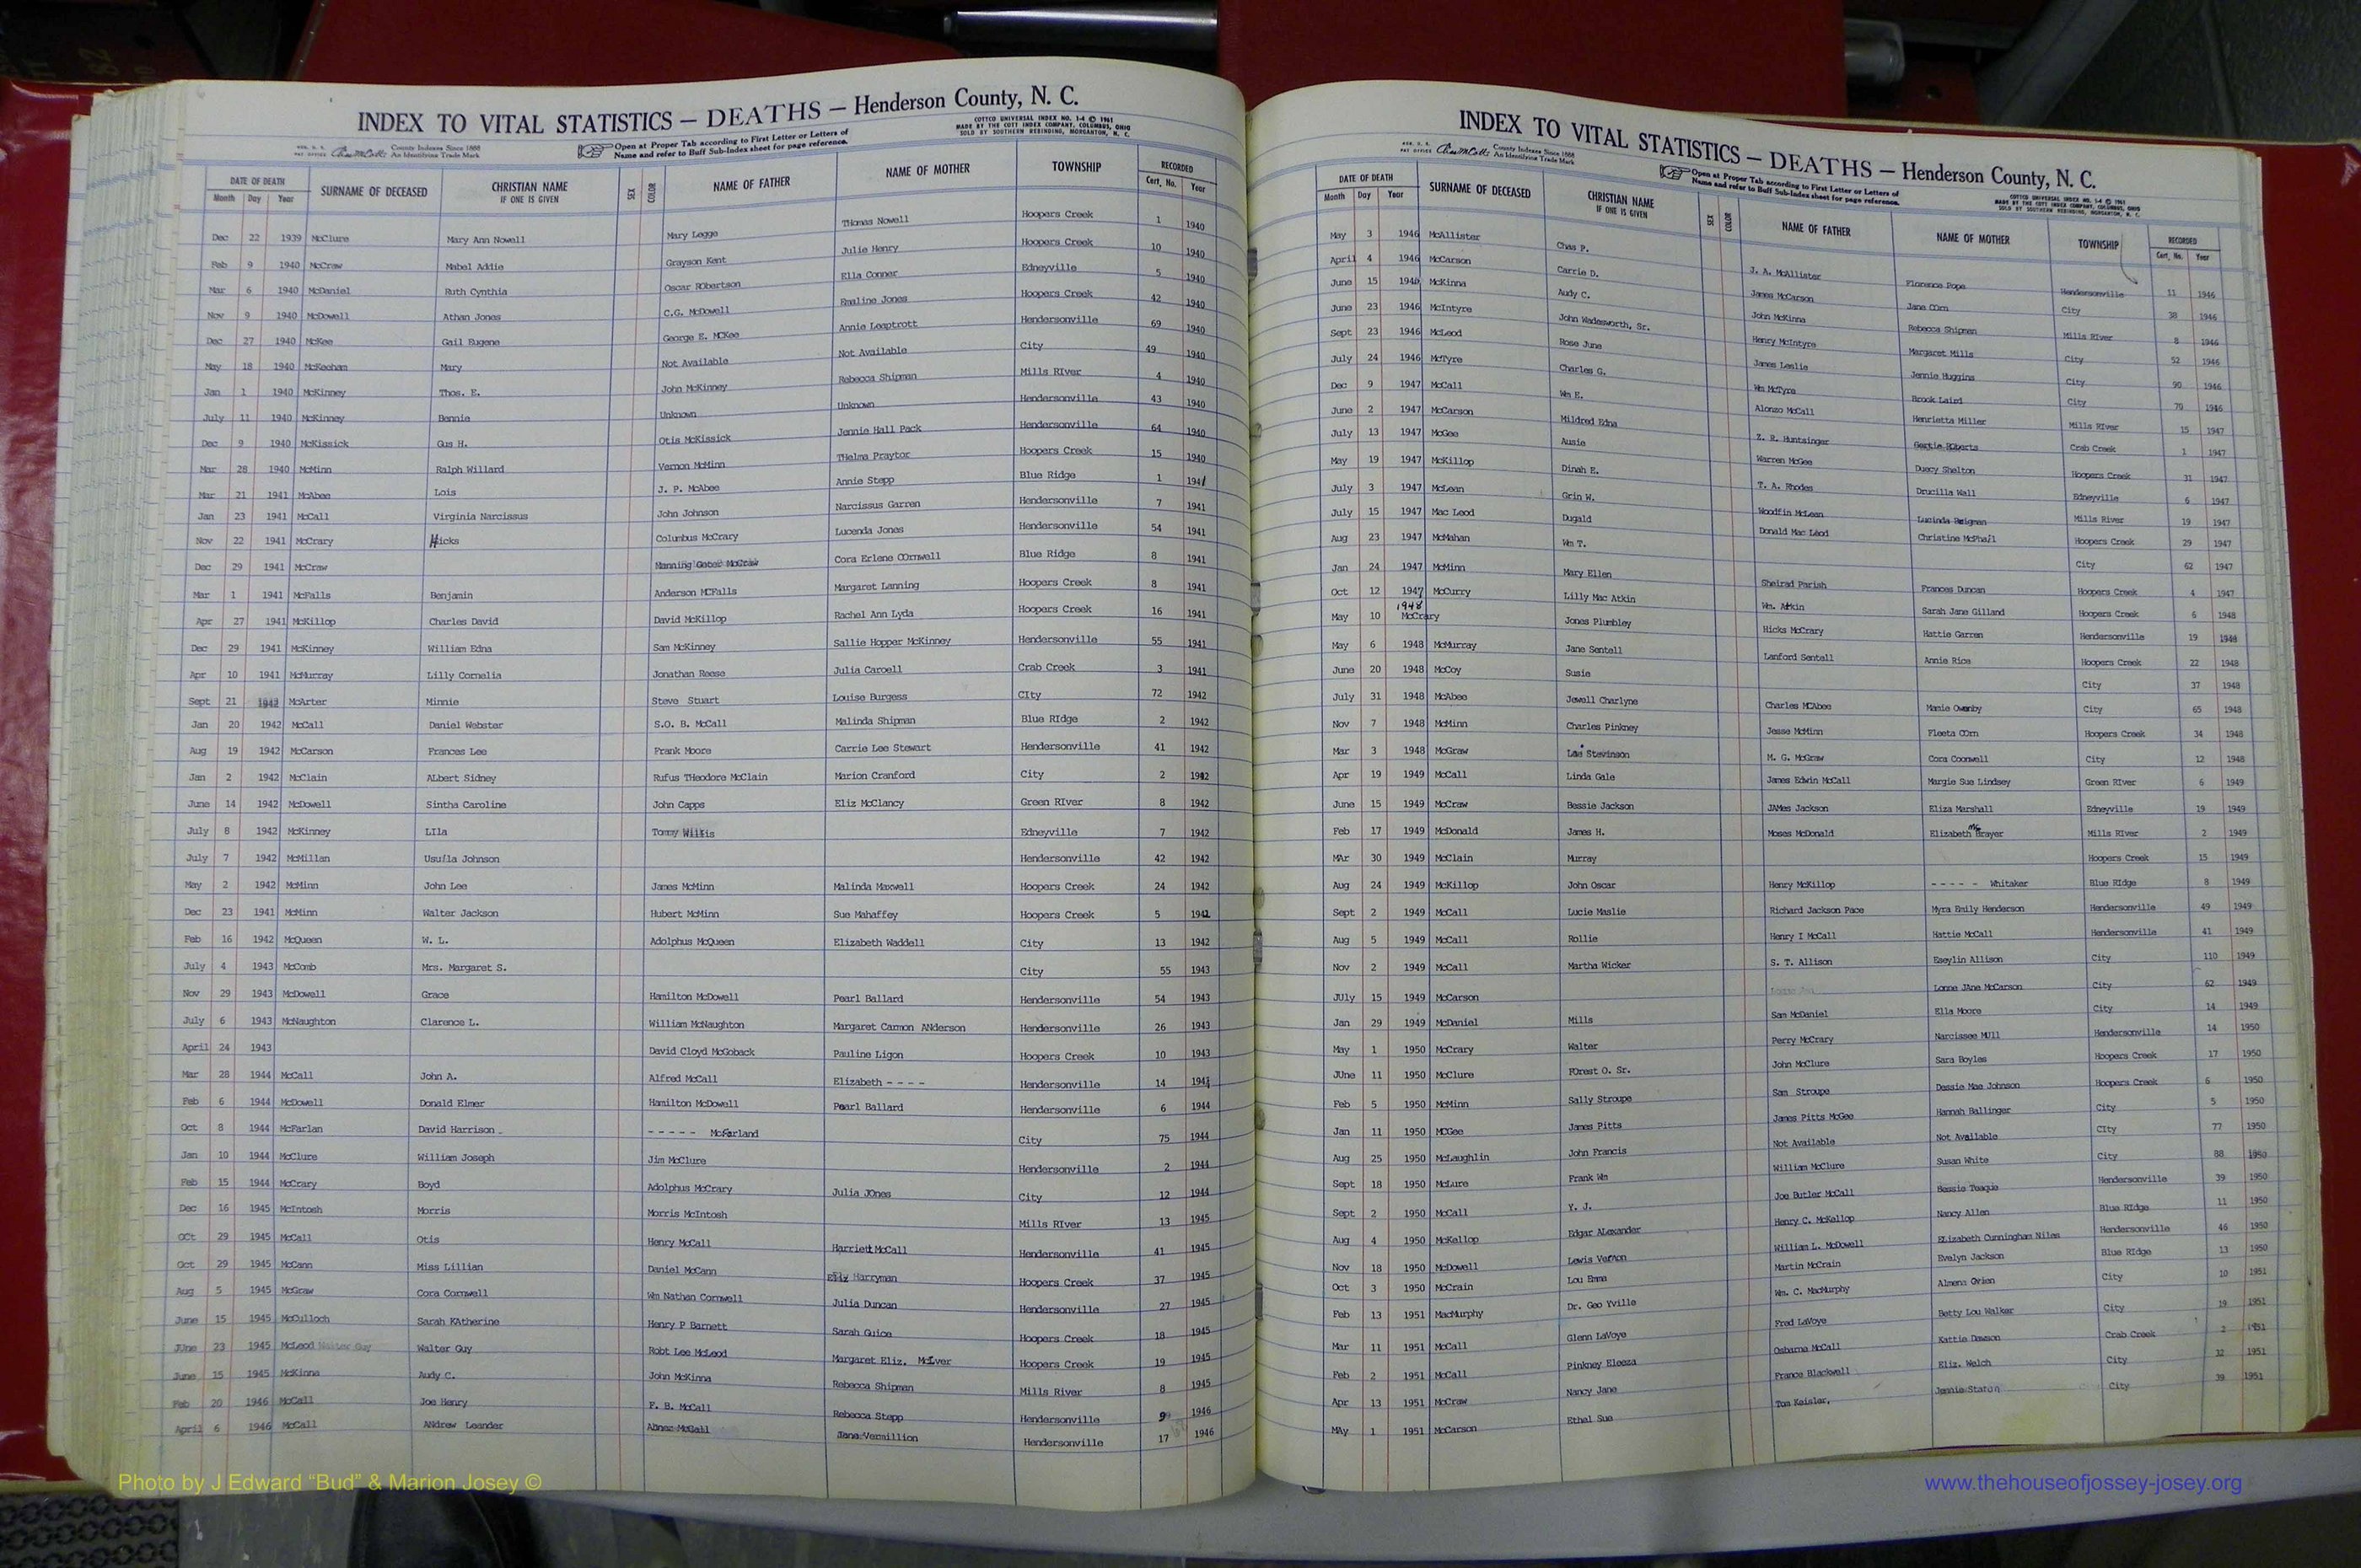 INDEX TO VITAL STATISTICS — DEATHS — Henderson County, N. C.
COTTCO UNIVERSAL INDEX NO. 1-4 © 1961
MADE BY THE COTT INDEX COMPANY, COLUMBUS, OHIO
SOLD BY SOUTHERN REBINDING, MORGANTON, N. C.
County Indexes Since 1888
An Identifying Trade Mark
Open at Proper Tab according to First Letter or Letters of
Name and refer to Buff Sub-Index sheet for page reference.
DATE OF DEATH SURNAME OF DECEASED CHRISTIAN NAME IF ONE IS GIVEN SEX COLOR NAME OF FATHER NAME OF MOTHER TOWNSHIP RECORDED
Month Day Year Cert. No. Year
Dec 22 1939 McClure Mary Ann Nowell Mary Legge THomas Nowell Hoopers Creek 1 1940
Feb 9 1940 McCraw Mabel Addie Grayson Kent Julie Henry Hoopers Creek 10 1940
Mar 6 1940 McDaniel Ruth Cynthia Oscar RObertson Ella Conner Edneyville 5 1940
Nov 9 1940 McDowell Athan Jones C.G. McDowell Emaline Jones Hoopers Creek 42 1940
Dec 27 1940 McKee Gail Eugene George E. MCKee Annie Leaptrott Hendersonville 69 1940
May 18 1940 McKeehan Mary Not Available Not Available City 49 1940
Jan 1 1940 McKinney Thos. E. John McKinney Rebecca Shipman Mills RIver 4 1940
July 11 1940 McKinney Bennie Unknown Unknown Hendersonville 43 1940
Dec 9 1940 McKissick Gus H. Otis McKissick Jennie Hall Pack Hendersonville 64 1940
Mar 28 1940 McMinn Ralph Willard Vernon McMinn THelma Praytor Hoopers Creek 15 1940
Mar 21 1941 McAbee Lois J. P. McAbee Annie Stepp Blue Ridge 1 1941
Jan 23 1941 McCall Virginia Narcissus John Johnson Narcissus Garren Hendersonville 7 1941
Nov 22 1941 McCrary Hicks Columbus McCrary Lucenda Jones Hendersonville 54 1941
Dec 29 1941 McCraw Manning Geter McCraw Cora Erlene COrnwell Blue Ridge 8 1941
Mar 1 1941 McFalls Benjamin Anderson MCFalls Margaret Lanning Hoopers Creek 8 1941
Apr 27 1941 McKillop Charles David David McKillop Rachel Ann Lyda Hoopers Creek 16 1941
Dec 29 1941 McKinney William Edna Sam McKinney Sallie Hopper McKinney Hendersonville 55 1941
Apr 10 1941 McMurray Lilly Cornelia Jonathan Reese Julia Carcell Crab Creek 3 1941
Sept 21 1942 McArter Minnie Steve Stuart Louise Burgess CIty 72 1942
Jan 20 1942 McCall Daniel Webster S.O. B. McCall Malinda Shipman Blue RIdge 2 1942
Aug 19 1942 McCarson Frances Lee Frank Moore Carrie Lee Stewart Hendersonville 41 1942
Jan 2 1942 McClain ALbert Sidney Rufus THeodore McClain Marion Cranford City 2 1942
June 14 1942 McDowell Sintha Caroline John Capps Eliz McClancy Green RIver 8 1942
July 8 1942 McKinney LIla Tommy Willis Edneyville 7 1942
July 7 1942 McMillan Usulla Johnson Hendersonville 42 1942
May 2 1942 McMinn John Lee James McMinn Malinda Maxwell Hoopers Creek 24 1942
Dec 23 1941 McMinn Walter Jackson Hubert McMinn Sue Mahaffey Hoopers Creek 5 1942
Feb 16 1942 McQueen W. L. Adolphus McQueen Elizabeth Waddell City 13 1942
July 4 1943 McComb Mrs. Margaret S. City 55 1943
Nov 29 1943 McDowell Grace Hamilton McDowell Pearl Ballard Hendersonville 54 1943
July 6 1943 McNaughton Clarence L. William McNaughton Margaret Carmon ANderson Hendersonville 26 1943
April 24 1943 David Cloyd McGoback Pauline Ligon Hoopers Creek 10 1943
Mar 28 1944 McCall John A. Alfred McCall Elizabeth - - - - Hendersonville 14 1944
Feb 6 1944 McDowell Donald Elmer Hamilton McDowell Pearl Ballard Hendersonville 6 1944
Oct 8 1944 McFarlan David Harrison - - - - - McFarland City 75 1944
Jan 10 1944 McClure William Joseph Jim McClure Hendersonville 2 1944
Feb 15 1944 McCrary Boyd Adolphus McCrary Julia JOnes City 12 1944
Dec 16 1945 McIntosh Morris Morris McIntosh Mills RIver 13 1945
OCt 29 1945 McCall Otis Henry McCall Harriett McCall Hendersonville 41 1945
Oct 29 1945 McCann Miss Lillian Daniel McCann Eliz Harryman Hoopers Creek 37 1945
Aug 5 1945 McGraw Cora Cornwell Wm Nathan Cornwell Julia Duncan Hendersonville 27 1945
June 15 1945 McCulloch Sarah KAtherine Henry P Barnett Sarah Guice Hoopers Creek 18 1945
JUne 23 1945 McLeod Walter Guy Robt Lee McLeod Margaret Eliz. McIver Hoopers Creek 19 1945
June 15 1945 McKinna Audy C. John McKinna Rebecca Shipman Mills River 8 1945
Feb 20 1946 McCall Joe Henry F. B. McCall Rebecca Stepp Hendersonville 9 1946
April 6 1946 McCall ANdrew Leander Abner McCall Jane Vermillion Hendersonville 17 1946
INDEX TO VITAL STATISTICS — DEATHS — Henderson County, N. C.
COTTCO UNIVERSAL INDEX NO. 1-4 © 1961
MADE BY THE COTT INDEX COMPANY, COLUMBUS, OHIO
SOLD BY SOUTHERN REBINDING, MORGANTON, N. C.
County Indexes Since 1888
An Identifying Trade Mark
Open at Proper Tab according to First Letter or Letters of
Name and refer to Buff Sub-Index sheet for page reference.
DATE OF DEATH SURNAME OF DECEASED CHRISTIAN NAME IF ONE IS GIVEN SEX COLOR NAME OF FATHER NAME OF MOTHER TOWNSHIP RECORDED
Month Day Year Cert. No. Year
May 3 1946 McAllister Chas P. J. A. McAllister Florence Pope Hendersonville 11 1946
April 4 1946 McCarson Carrie D. James McCarson Jane COrn City 38 1946
June 15 1946 McKinna Audy C. John McKinna Rebecca Shipman Mills RIver 8 1946
June 23 1946 McIntyre John Wadesworth, Sr. Henry McIntyre Margaret Mills City 52 1946
Sept 23 1946 McLeod Rose June James Leslie Jennie Huggins City 90 1946
July 24 1946 McTyre Charles G. Wm McTyre Brook Laird City 70 1946
Dec 9 1947 McCall Wm E. Alonzo McCall Henrietta Miller Mills RIver 15 1947
June 2 1947 McCarson Mildred Edna Z. R. Huntsinger Gertie Roberts Crab Creek 1 1947
July 13 1947 McGee Ausie Warren McGee Duecy Shelton Hoopers Creek 31 1947
May 19 1947 McKillop Dinah E. T. A. Rhodes Drucilla Wall Edneyville 6 1947
July 3 1947 McLean Grin W. Woodfin McLean Lucinda Mills River 19 1947
July 15 1947 Mac Leod Dugald Donald Mac Leod Christine McPhail Hoopers Creek 29 1947
Aug 23 1947 McMahan Wm T. City 62 1947
Jan 24 1947 McMinn Mary Ellen Sheirad Parish Frances Duncan Hoopers Creek 4 1947
Oct 12 1947 McCurry Lilly Mac Atkin Wm. Atkin Sarah Jane Gilland Hoopers Creek 6 1948
May 10 1948 McCrary Jones Plumbley Hicks McCrary Hattie Garren Hendersonville 19 1948
May 6 1948 McMurray Jane Sentell Lanford Sentell Annie Rice Hoopers Creek 22 1948
June 20 1948 McCoy Susie City 37 1948
July 31 1948 McAbee Jewell Charlyne Charles MCAbee Mamie Owenby City 65 1948
Nov 7 1948 McMinn Charles Pinkney Jesse McMinn Fleeta COrn Hoopers Creek 34 1948
Mar 3 1948 McGraw Lee Stevinson M. G. McGraw Cora Coonwell City 12 1948
Apr 19 1949 McCall Linda Gale James Edwin McCall Margie Sue Lindsey Green RIver 6 1949
June 15 1949 McCraw Bessie Jackson JAMes Jackson Eliza Marshall Edneyville 19 1949
Feb 17 1949 McDonald James H. Moses McDonald Elizabeth Mc Brayer Mills RIver 2 1949
MAr 30 1949 McClain Murray Hoopers Creek 15 1949
Aug 24 1949 McKillop John Oscar Henry McKillop - - - - - Whitaker Blue RIdge 8 1949
Sept 2 1949 McCall Lucie Maslie Richard Jackson Pace Myra Emily Henderson Hendersonville 49 1949
Aug 5 1949 McCall Rollie Henry I McCall Hattie McCall Hendersonville 41 1949
Nov 2 1949 McCall Martha Wicker S. T. Allison Eseylin Allison City 110 1949
JUly 15 1949 McCarson Lonne JAne McCarson City 62 1949
Jan 29 1949 McDaniel Mills Sam McDaniel Ella Moore City 14 1949
May 1 1950 McCrary Walter Perry McCrary Narcissee MUll Hendersonville 14 1950
JUne 11 1950 McClure FOrest O. Sr. John McClure Sara Boyles Hoopers Creek 17 1950
Feb 5 1950 McMinn Sally Stroupe Sam Stroupe Dessie Mae Johnson Hoopers Creek 6 1950
Jan 11 1950 MCGee James Pitts James Pitts McGee Hannah Ballinger City 5 1950
Aug 25 1950 McLaughlin John Francis Not Available Not Available CIty 77 1950
Sept 18 1950 McLure Frank Wm William McClure Susan White City 88 1950
Sept 2 1950 McCall Y. J. Joe Butler McCall Bessie Teague Hendersonville 39 1950
Aug 4 1950 McKellop Edgar ALexander Henry C. McKellop Nancy Allen Blue RIdge 11 1950
Nov 18 1950 McDowell Lewis Vernon William L. McDowell ELizabeth Cunningham Niles Hendersonville 46 1950
Oct 3 1950 McCrain Lou Emma Martin McCrain Evelyn Jackson Blue RIdge 13 1950
Feb 13 1951 MacMurphy Dr. Geo Yville Wm. C. MacMurphy Almena Ovien City 10 1951
Mar 11 1951 McCall Glenn LaVoye Fred LaVoye Betty Lou Walker City 19 1951
Feb 2 1951 McCall Pinkney Eleeza Osburne McCall Kattie Dawson Crab Creek 2 1951
Apr 13 1951 McCraw Nancy Jane France Blackwell Eliz. Welch City 32 1951
MAy 1 1951 McCarson Ethel Sue Tom Keisler, Jennie Staton City 39 1951
Photo by J Edward “Bud” & Marion Josey ©
www.thehouseofjossey-josey.org